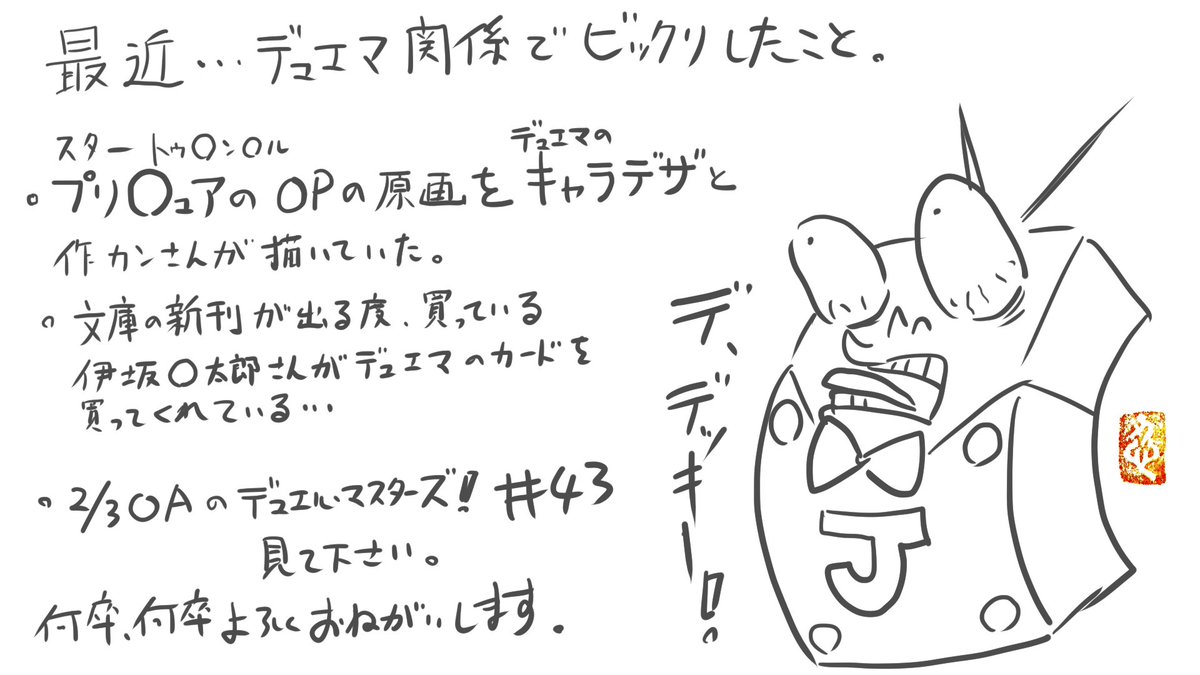 最近…デュエマ関係でビックリしたこと。
スタートゥ〇ン〇ル
デュエマの
。プリ〇ュアのOPの原画をキャラデザと
作カンさんが描いていた。
。文庫の新刊が出る度、買っている
伊坂〇太郎さんがデュエマのカードを
買ってくれている…
。2/3OAのデュエル・マスターズ!#43
見て下さい。
何卒、何卒よろしくおねがいします。
デ、デッキー!
J